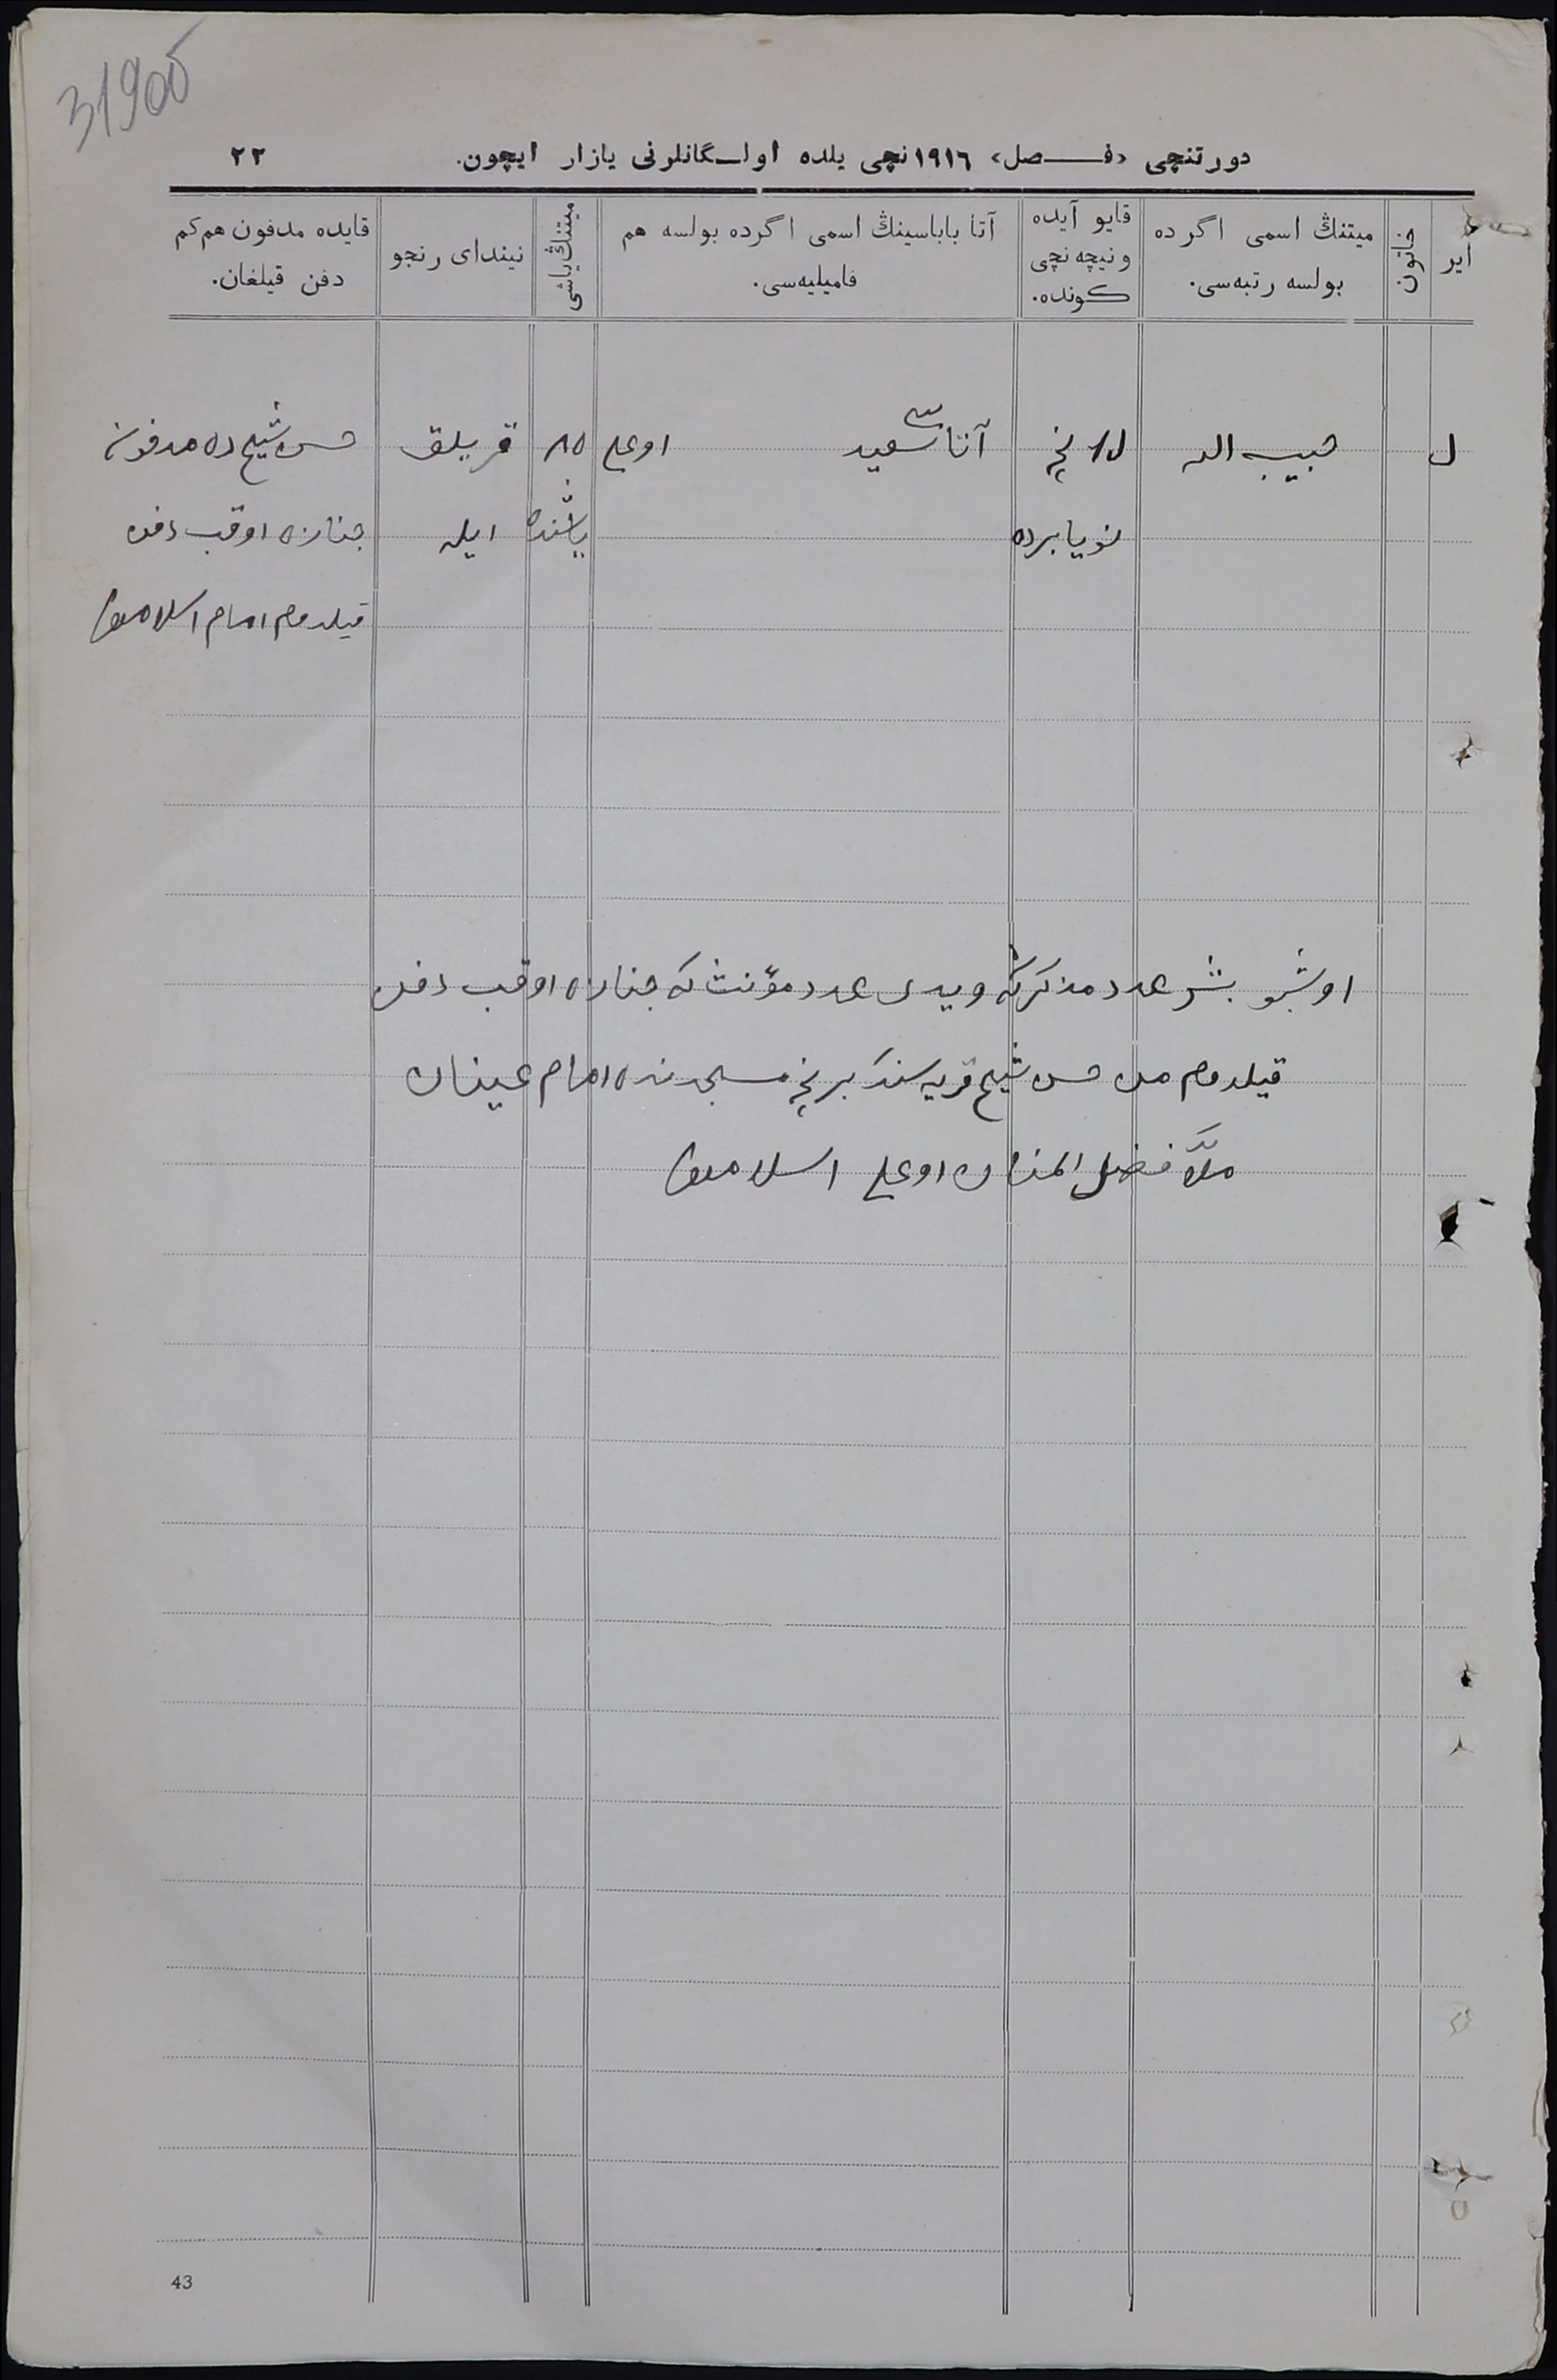 31900
دورتنچی «فـــصل» ١٩١٦نچی یلده اولـگانلرنی یازار ایچون.
٢٢
ایر
خاتون
میتنڭ اسمی اگرده
بولسه رتبه‌سی.
قایو آیده
ونیچه‌نچی
کونده.
آتا باباسینڭ اسمی اگرده بولسه هم
فامیلیه‌سی.
میتنڭ یاشی
نیندای رنجو
قایده مدفون هم‌کم
دفن قیلغان.
حبیب الله
نچی
آتا سعید اوغلی
قریلق
حسن شیخ ده مدفونه
نویابرده
یاشنده
ایله
جنازه اوقب دفن
قیلدوم امام اسلاموف
اوشبو بش عدد مذکرکه ویدی عدد مؤنث که جنازه اوقب دفن
قیلدوم من حسن شیخ قریه سنڭ برنچی مسجدنده امام عینان
ملّا فضل المنان اوغلی اسلاموف
43